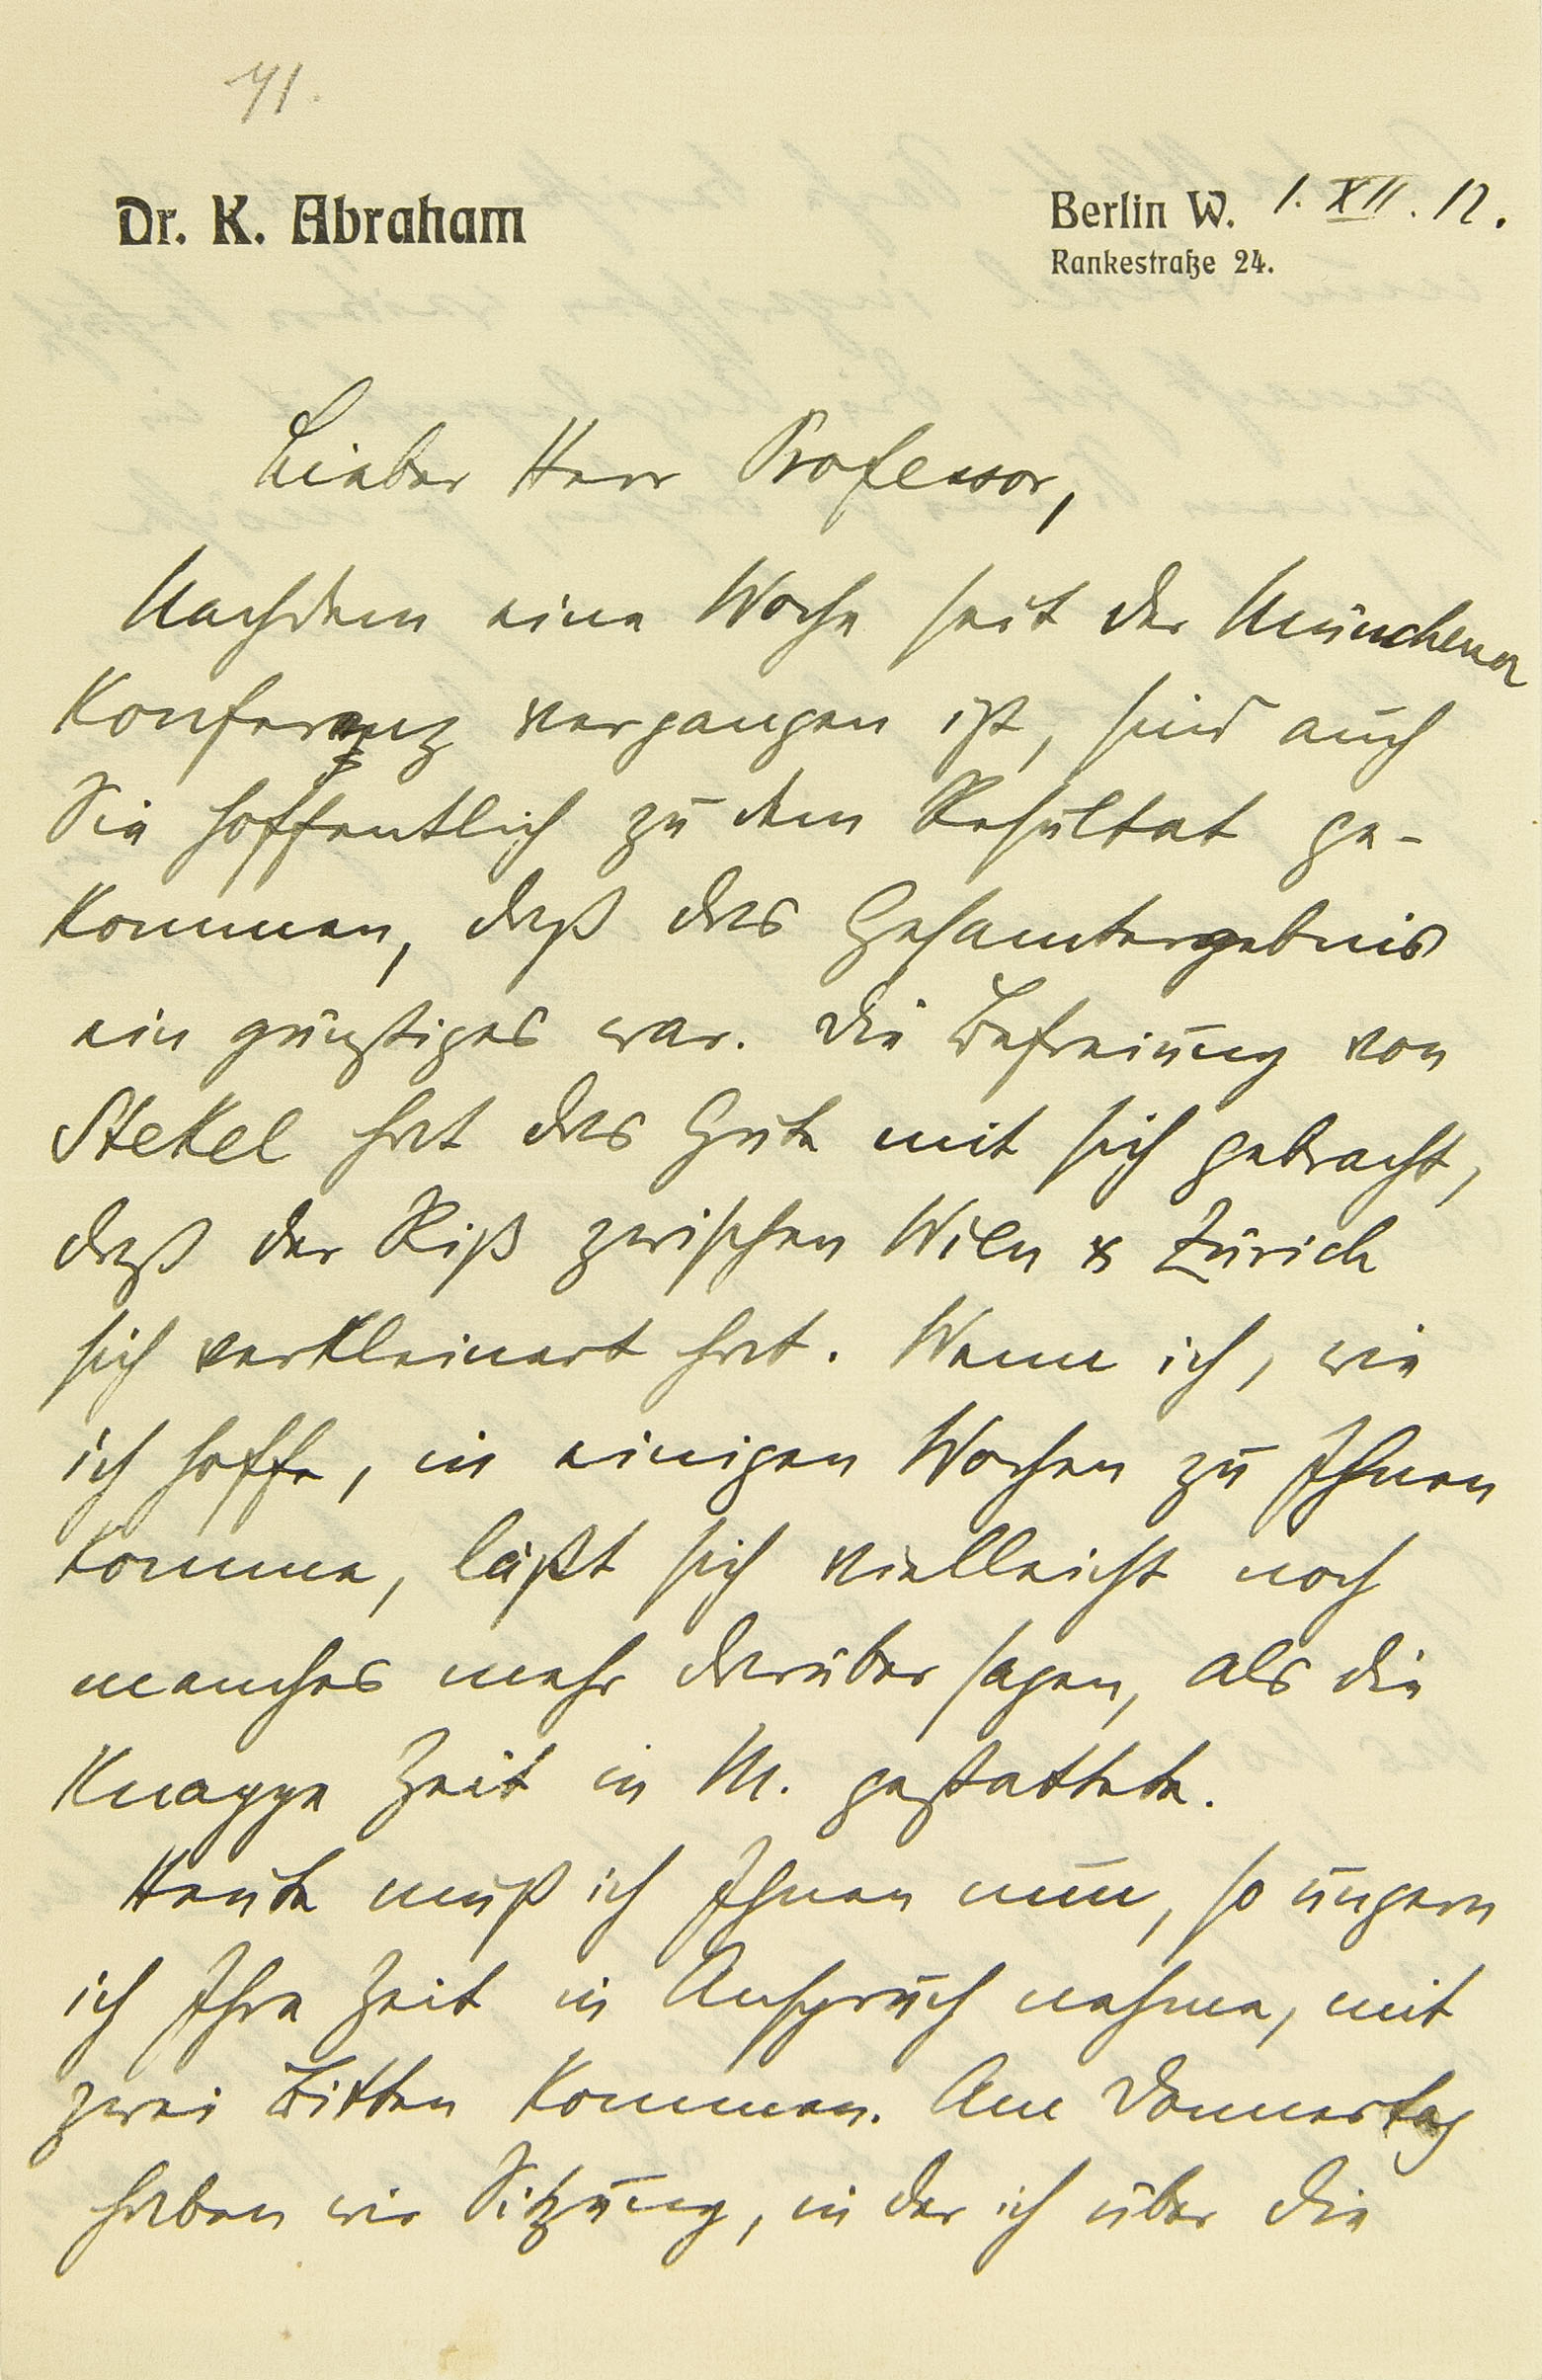 71.
Dr. K. Abraham
Berlin W. 1. XII. 12.
Rankestraße 24.
Lieber Herr Professor,
Nachdem eine Woche seit der Münchener
Konferenz vergangen ist, sind auch
Sie hoffentlich zu dem Resultat ge-
kommen, daß das Gesamtergebnis
ein günstiges war. Die Befreiung von
Stekel hat das Gute mit sich gebracht,
daß der Riß zwischen Wien & Zürich
sich verkleinert hat. Wenn ich, wie
ich hoffe, in einigen Wochen zu Ihnen
komme, läßt sich vielleicht noch
manches mehr darüber sagen, als die
knappe Zeit in M. gestattete.
Heute muß ich Ihnen nun, so ungern
ich Ihre Zeit in Anspruch nehme, mit
zwei Bitten kommen. Am Donnerstag
haben wir Sitzung, in der ich über die